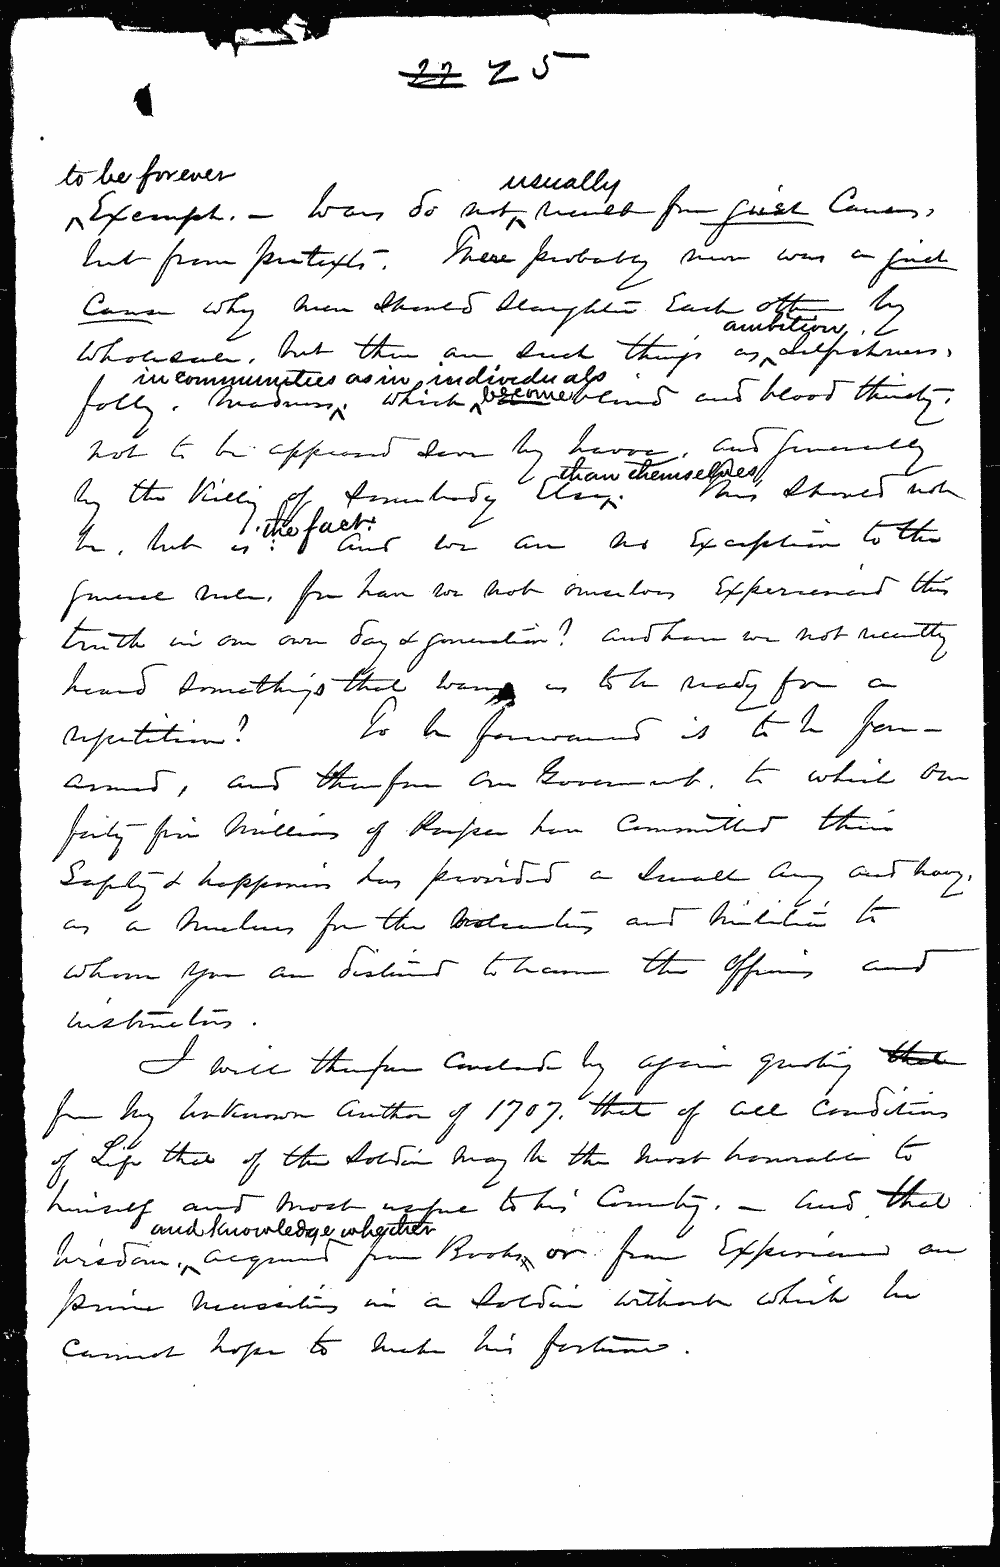 22 25
to be forever usually
Exempt. — Wars do not result from just Causes,
but from pretexts. There probably never was a just
Cause why men should slaughter Each other by
ambition,
wholesale, but there are such things as selfishness,
in communities as in individuals
folly, madness, which become blind and blood thirsty,
not to be appeased save by havoc, and generally
than themselves
by the killing of somebody Else. This should not
the fact:
be, but is: and we are no Exception to the
general rule, for have we not ourselves Experienced this
truth in our own day & generation? and have we not recently
heard somethings that warns us to be ready for a
repetition? To be forewarned is to be fore-
armed, and therefore our Government, to which our
forty five millions of People have committed their
Safety & happiness has provided a small Army and Navy,
as a nucleus for the Volunteers and Militia to
whom you are destined to become the Officers and
instructors.
I will therefore conclude by again quoting that
from my unknown author of 1707, that of all conditions
of Life that of the Soldier may be the most honorable to
himself and most useful to his Country. — and that
and knowledge whether
wisdom, acquired from Books, or from Experience are
prime necessities in a Soldier without which he
cannot hope to make his fortune.